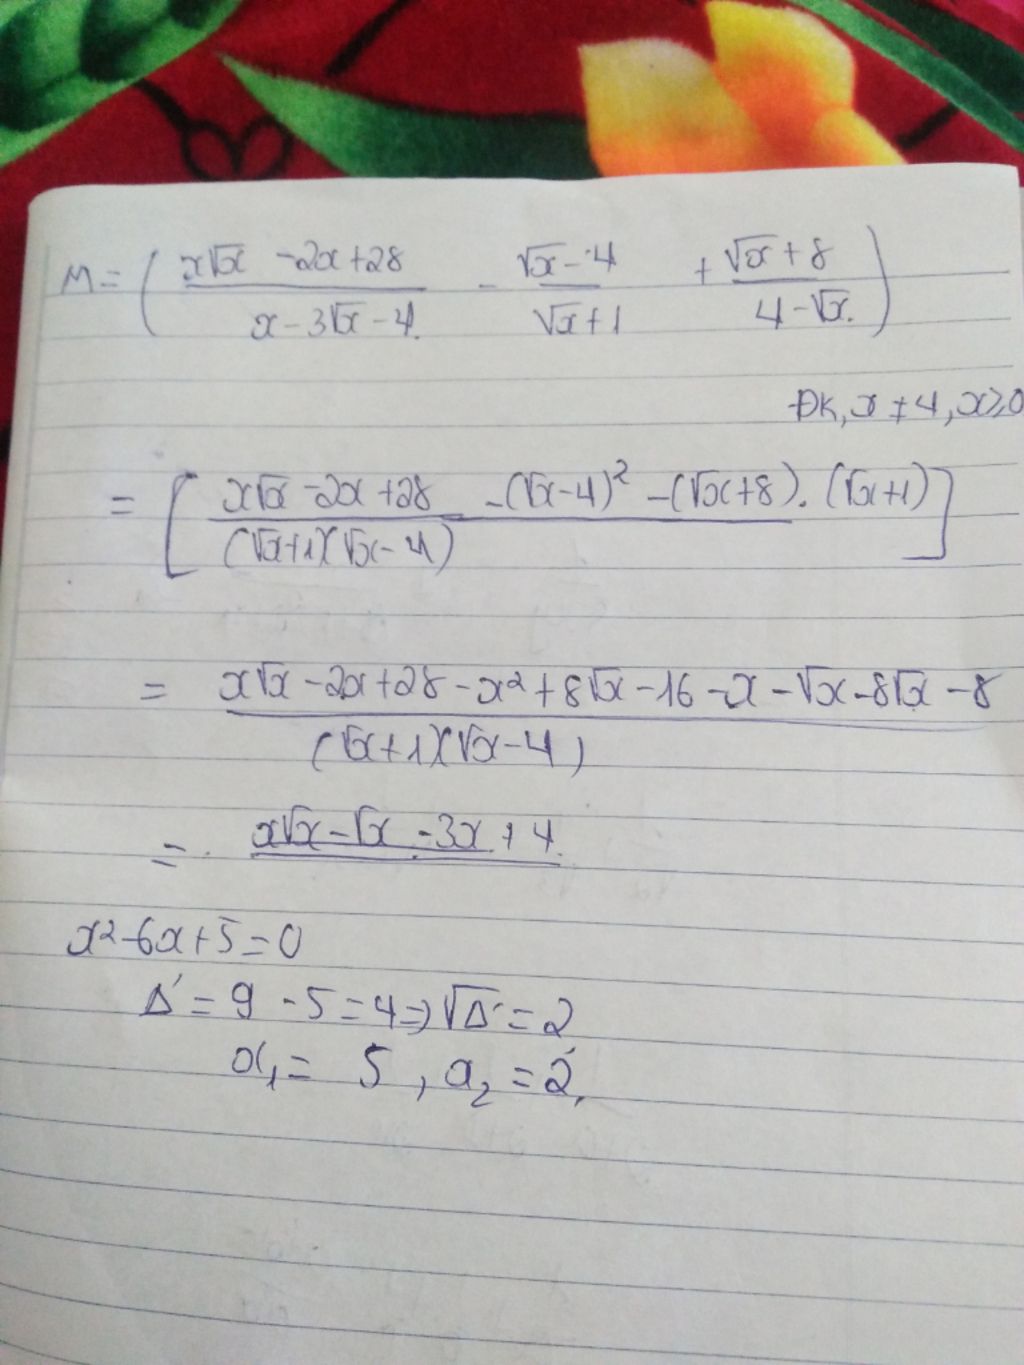 M = ( (x√x - 2x + 28)/(x - 3√x - 4) - (√x - 4)/(√x + 1) + (√x + 8)/(4 - √x) )
ĐK, x ≠ 4, x ≥ 0
= [ (x√x - 2x + 28 - (√x - 4)² - (√x + 8).(√x + 1))/((√x + 1)(√x - 4)) ]
= (x√x - 2x + 28 - x² + 8√x - 16 - x - √x - 8√x - 8)/((√x + 1)(√x - 4))
= x√x - √x - 3x + 4
x² - 6x + 5 = 0
Δ' = 9 - 5 = 4 => √Δ' = 2
x₁ = 5, x₂ = 2,